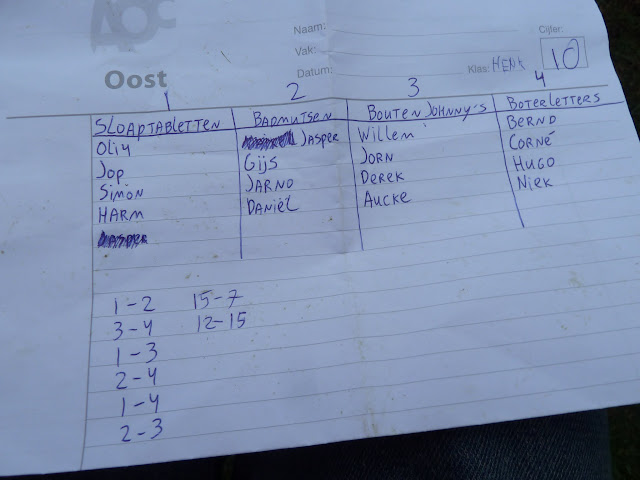 AOC
Oost
Naam:
Vak:
Datum:
Klas: HENK
Cijfer:
10
1 2 3 4
SLOAPTABLETTEN BADMUTSEN BOUTEN JOHNNY'S BOTERLETTERS
OLIY JASPER Willem BERND
Jop Gijs JORN CORNÉ
Simon JARNO DEREK HUGO
HARM DANIËL AUCKE NIEK
1-2 15-7
3-4 12-15
1-3
2-4
1-4
2-3